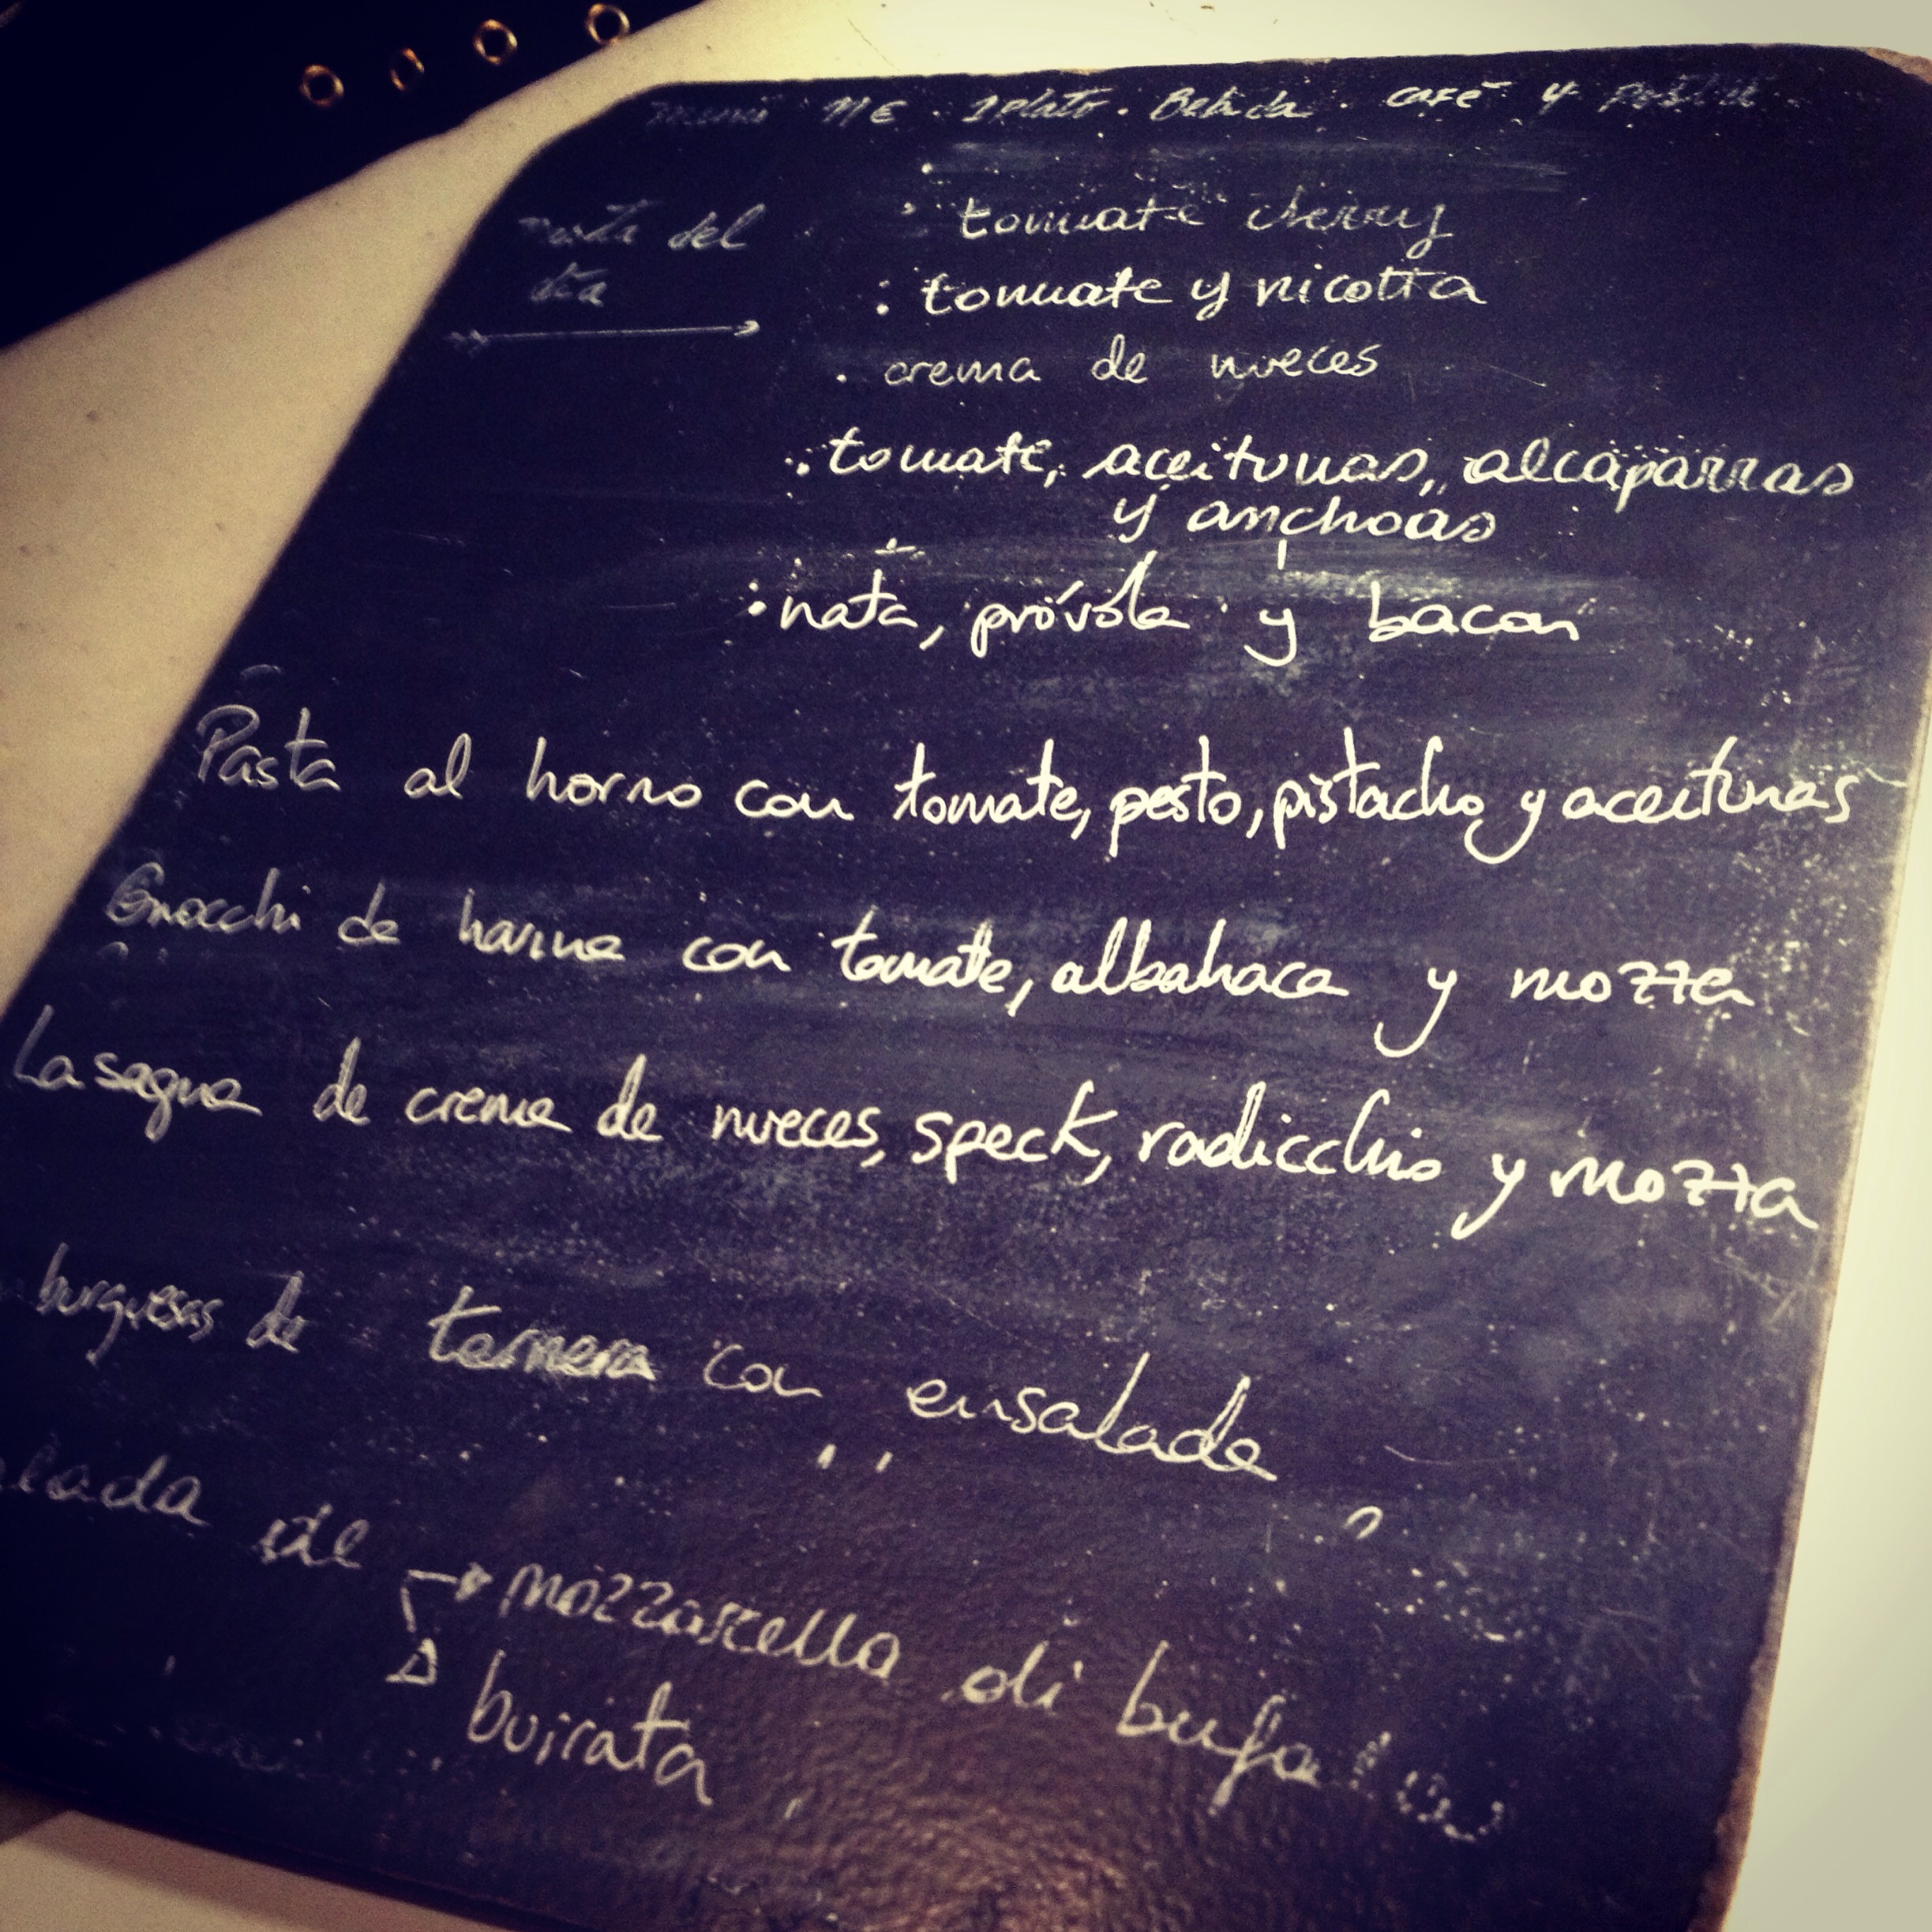 menú 11€ · 1 plato · Bebida · café y postre
pasta del
día
· tomate cherry
: tomate y ricotta
· crema de nueces
· tomate, aceitunas, alcaparras
y anchoas
: nata, próvola y bacon
Pasta al horno con tomate, pesto, pistacho y aceitunas
Gnocchi de harina con tomate, albahaca y mozza
Lasagna de crema de nueces, speck, radicchio y mozza
burguesas de ternera con ensalada
lada de → mozzarella di bufala
burrata